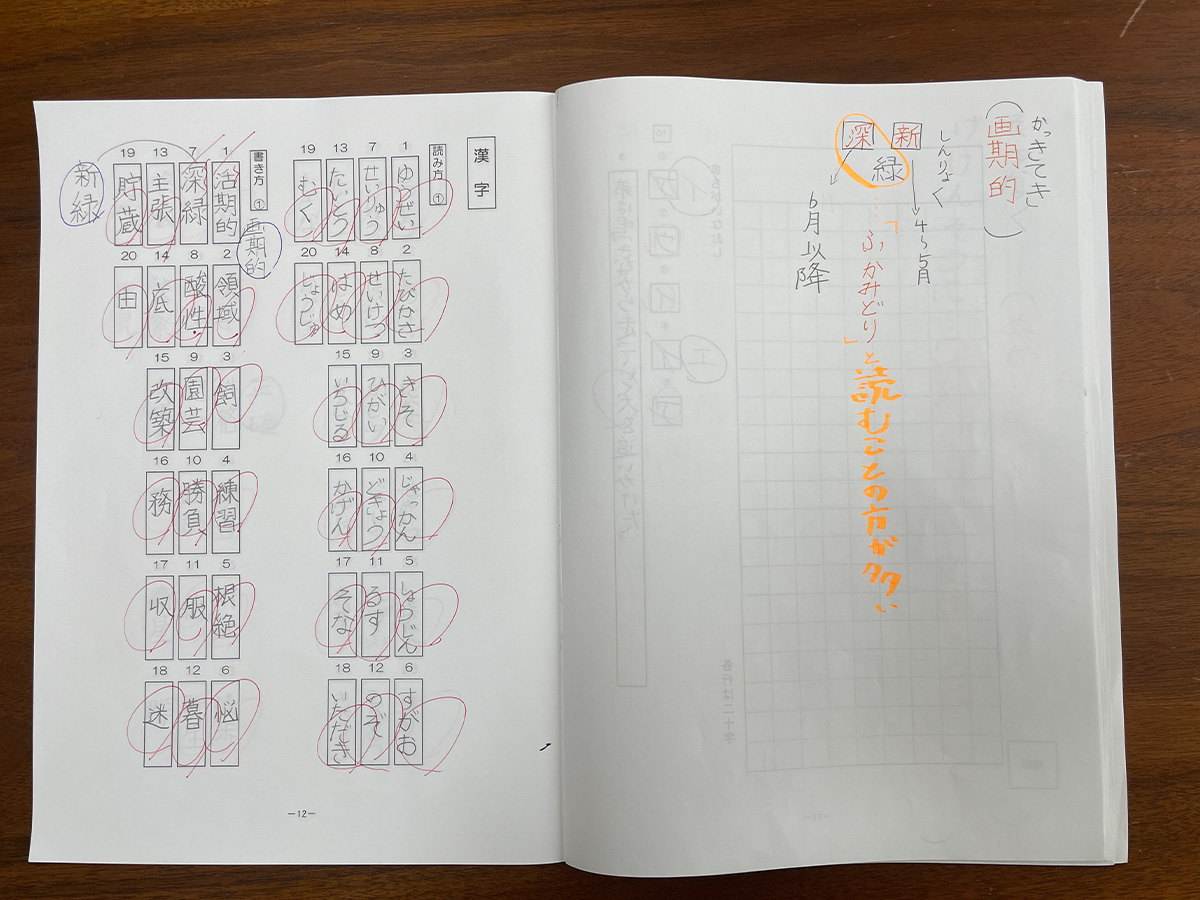 漢字
読み方①
1
ゆうぜい
2
たびかさ
3
きそ
4
じゃっかん
5
しょうじん
6
すがお
7
せいりゅう
8
せいけつ
9
ひがい
10
どきょう
11
るす
12
のぞ
13
たいとう
14
はめ
15
いちじる
16
かげん
17
そな
18
いただき
19
むく
20
じょうじゅ
書き方①
1
活期的
画期的
2
領域
3
飼
4
練習
5
根絶
6
悩
7
深緑
新緑
8
酸性
9
園芸
10
勝負
11
服
12
暮
13
主張
14
底
15
改築
16
務
17
収
18
迷
19
貯蔵
20
由
―12―
かっきてき
(画期的)
しんりょく
新
深
緑
4~5月
…「ふかみどり」と読むことの方が多い
6月以降